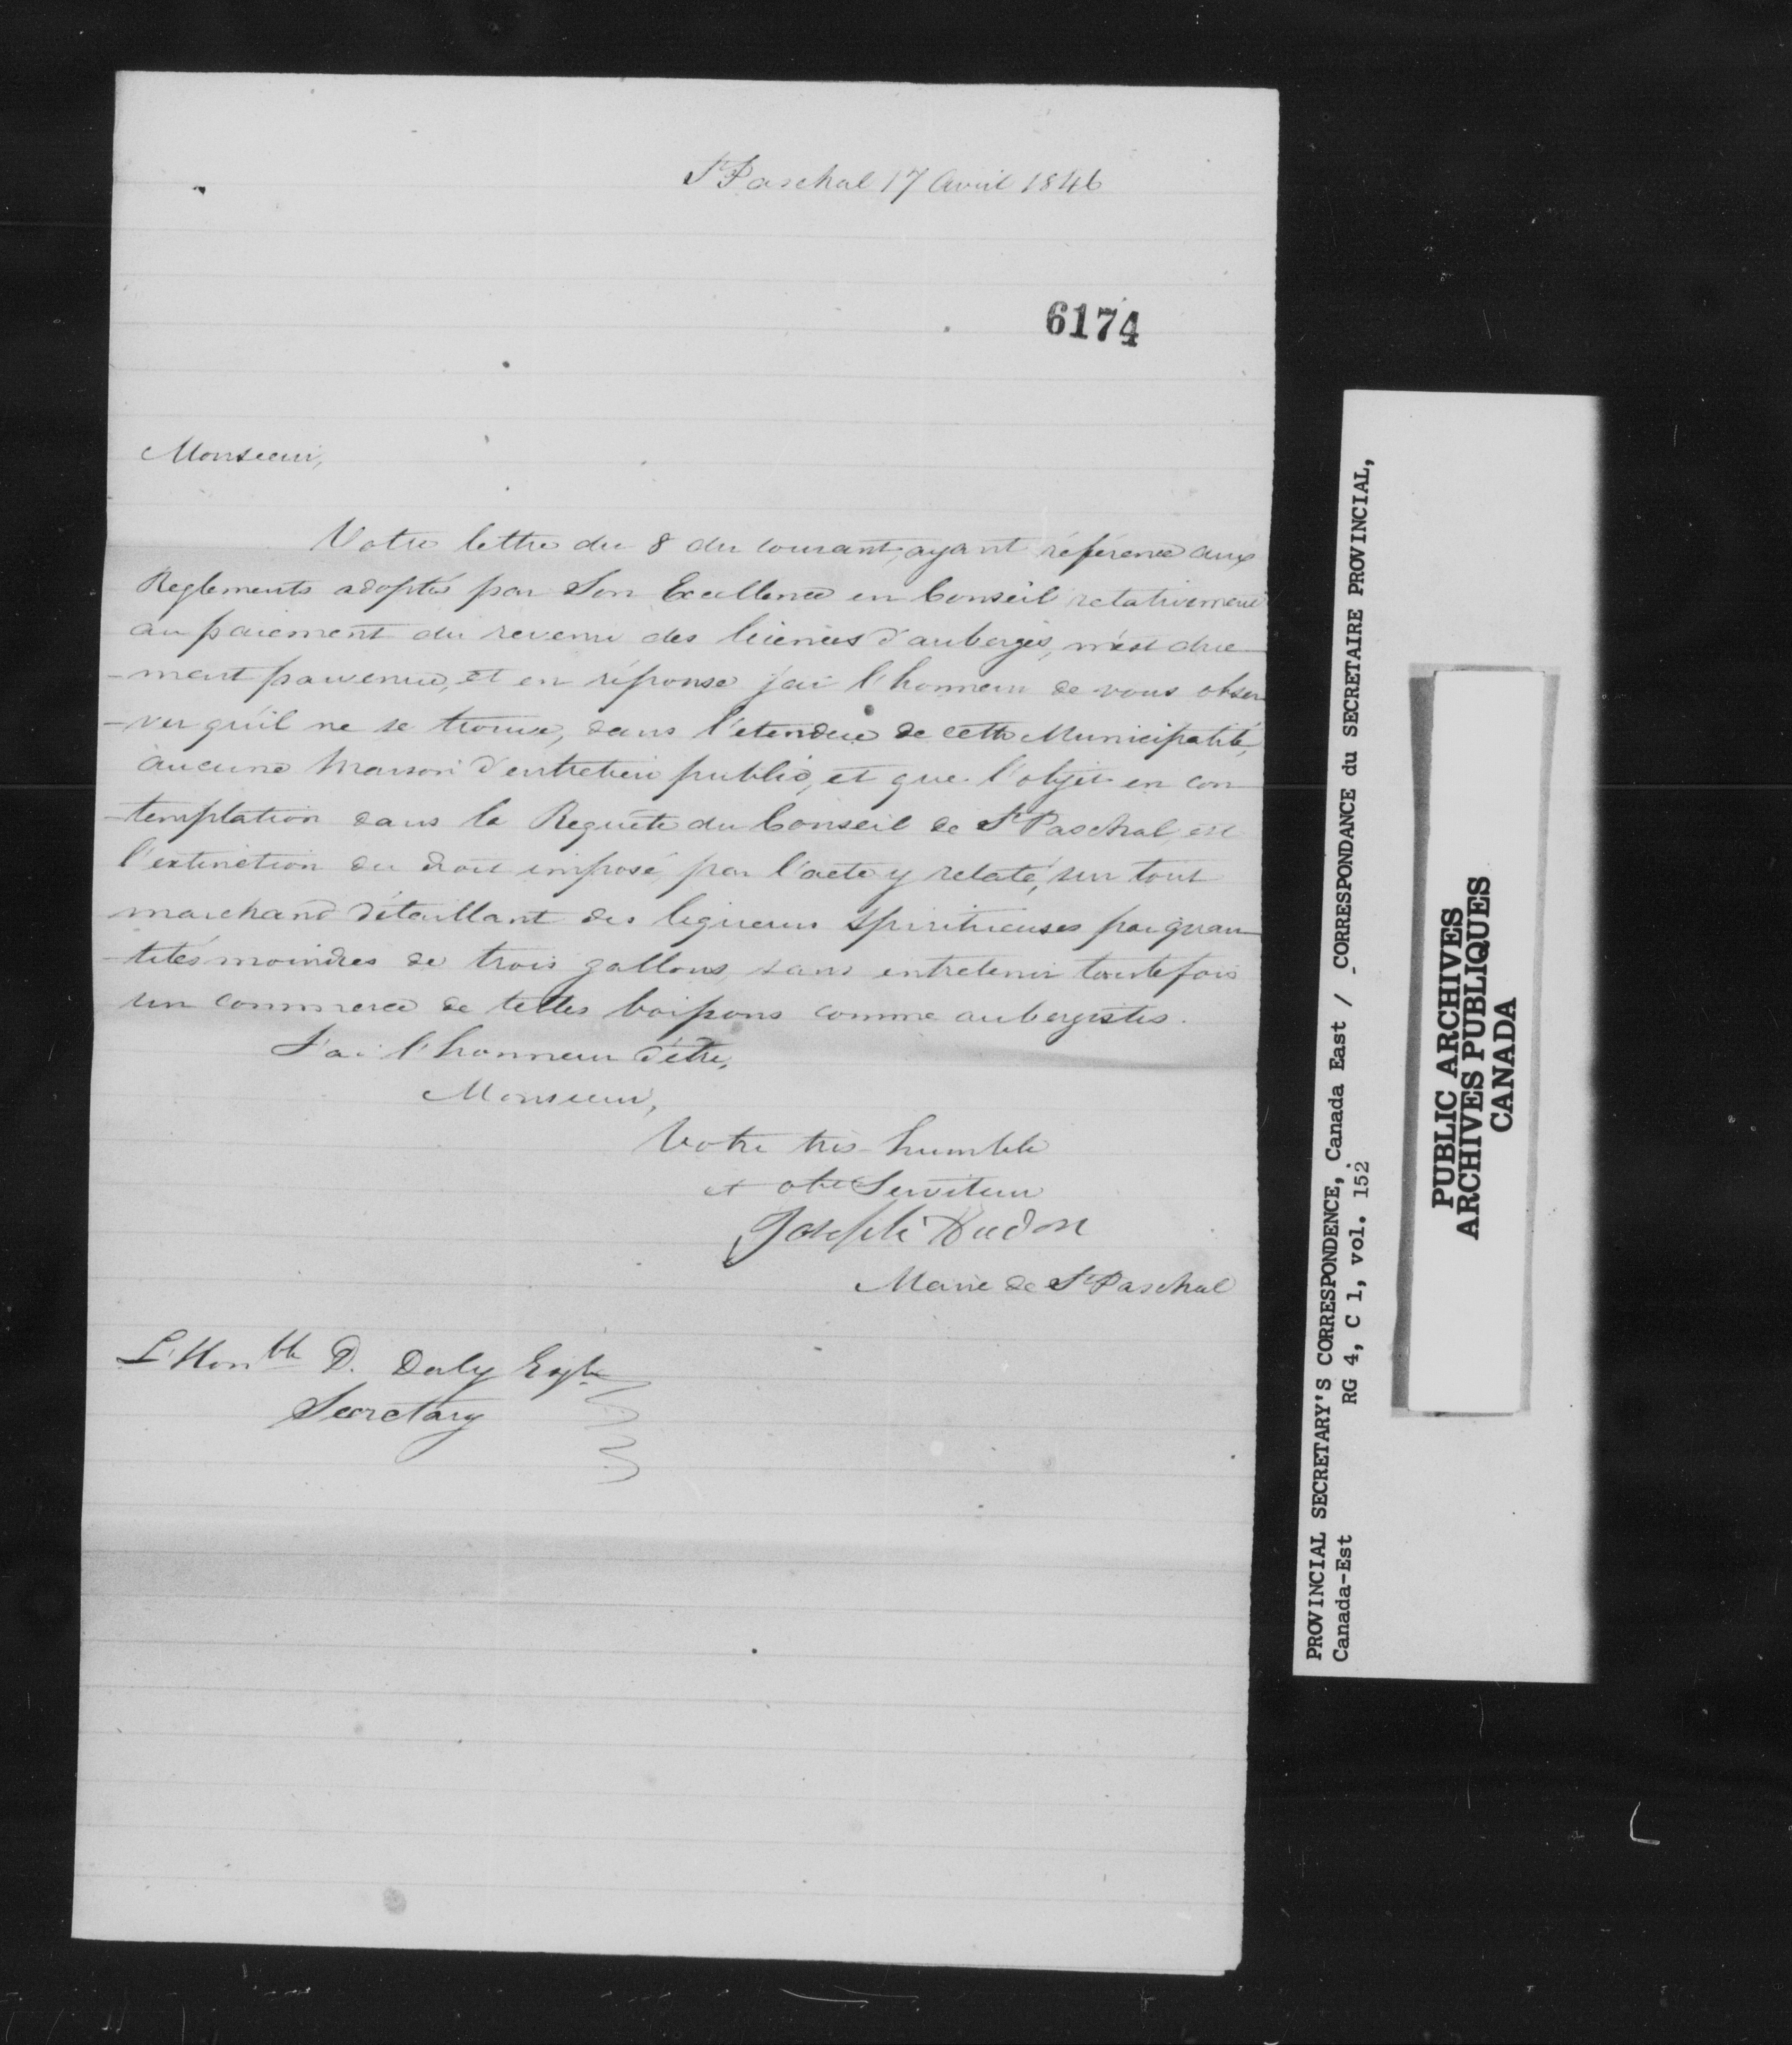 St Paschal 17 Avril 1846
6174
Monsieur,
Votre lettre du 8 du courant, ayant référence aux
Reglements adoptés par Son Excellence en Conseil relativement
au paiement du revenu des licences d'auberges, m'est due
-ment parvenue, et en réponse j'ai l'honneur de vous obser
-ver qu'il ne se trouve, dans l'étendue de cette Municipalité,
aucune Maison d'entretien public, et que l'objet en con
-templation dans la Requête du Conseil de St Paschal, est
l'extinction du droit imposé, par l'acte y relaté, sur tout
marchand détaillant des liqueurs spiritueuses par quan
-tités moindres de trois gallons, sans entretenir toutefois
un commerce de telles boissons comme aubergistes.
J'ai l'honneur d'être,
Monsieur,
Votre très-humble
et obt Serviteur
Joseph Hudon
Maire de St Paschal
L'Honble D. Daly
Secretary
PROVINCIAL SECRETARY'S CORRESPONDENCE, Canada East / CORRESPONDANCE du SECRETAIRE PROVINCIAL,
Canada-Est RG 4, C 1, vol. 152
PUBLIC ARCHIVES
ARCHIVES PUBLIQUES
CANADA